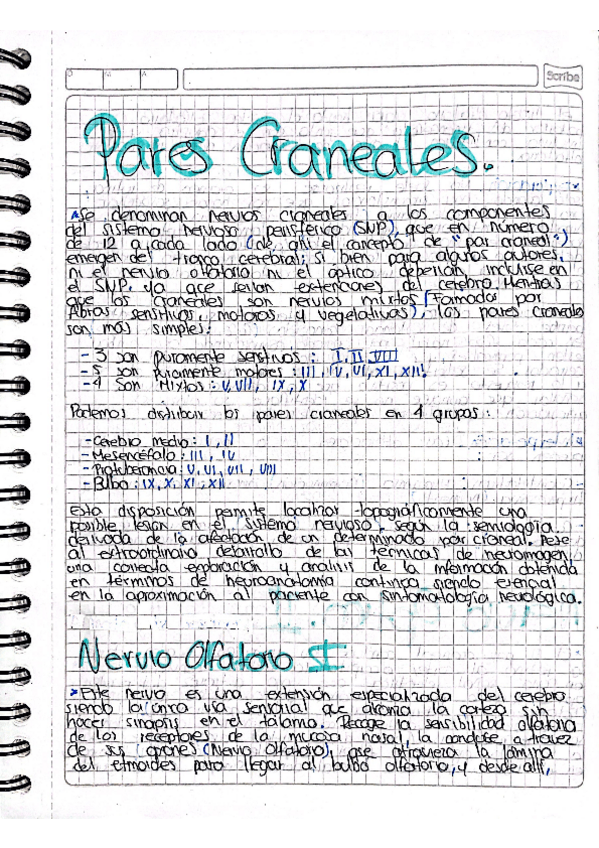 D M A
Scribe
Pares Craneales.
Se denominan nervios craneales a los componentes
del sistema nervioso periférico (SNP), que en número
de 12 a cada lado (de ahí el concepto de "par craneal")
emergen del tronco cerebral; si bien para algunos autores,
ni el nervio olfatorio ni el óptico deberían incluirse en
el SNP, ya que serían extensiones del cerebro. Mientras
que los craneales son nervios mixtos (Formados por
fibras sensitivas, motoras y vegetativas), los pares craneales
son más simples:
- 3 son puramente sensitivos: I, II, VIII
- 5 son puramente motores: III, IV, VI, XI, XII.
- 4 son Mixtos: V, VII, IX, X
Podemos distribuir los pares craneales en 4 grupos:
- Cerebro medio: I, II
- Mesencéfalo: III, IV
- Protuberancia: V, VI, VII, VIII
- Bulbo: IX, X, XI, XII
Esta disposición permite localizar topográficamente una
posible lesión en el sistema nervioso, según la semiología
derivada de la afectación de un determinado par craneal. Pese
al extraordinario desarrollo de las técnicas de neuroimagen,
una correcta exploración y análisis de la información obtenida
en términos de neuroanatomía continúa siendo esencial
en la aproximación al paciente con sintomatología neurológica.
Nervio Olfatorio I
Este nervio es una extensión especializada del cerebro
siendo la única vía sensorial que alcanza la corteza sin
hacer sinapsis en el tálamo. Recoge la sensibilidad olfatoria
de los receptores de la mucosa nasal, la conduce a travez
de sus axones (Nervio Olfatorio), que atraviesa la lámina
del etmoides para llegar al bulbo olfatorio, y desde allí,